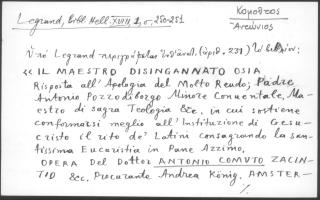 Legrand, Bibl. Hell. XVIII, 1, σ. 250-251
Κομοῦτος
Ἀντώνιος
Ὑπὸ Legrand περιγράφεται (ἀριθ. 231) τὸ βιβλίον:
«IL MAESTRO DISINGANNATO OSIA
Risposta all'Apologia del Molto Reudo; Padre
Antonio Pozzodiborgo Minore Conuentale, Ma-
estro di sagra Teologia &c. in cui sostiene
conformarsi meglio all'Instituzione di Gesu-
cristo il rito de' Latini consagrando la san-
tissima Eucaristia in Pane Azzimo,
OPERA Del Dottor ANTONIO COMUTO ZACIN-
TIO &c. Procurante Andrea König, AMSTER-
/.